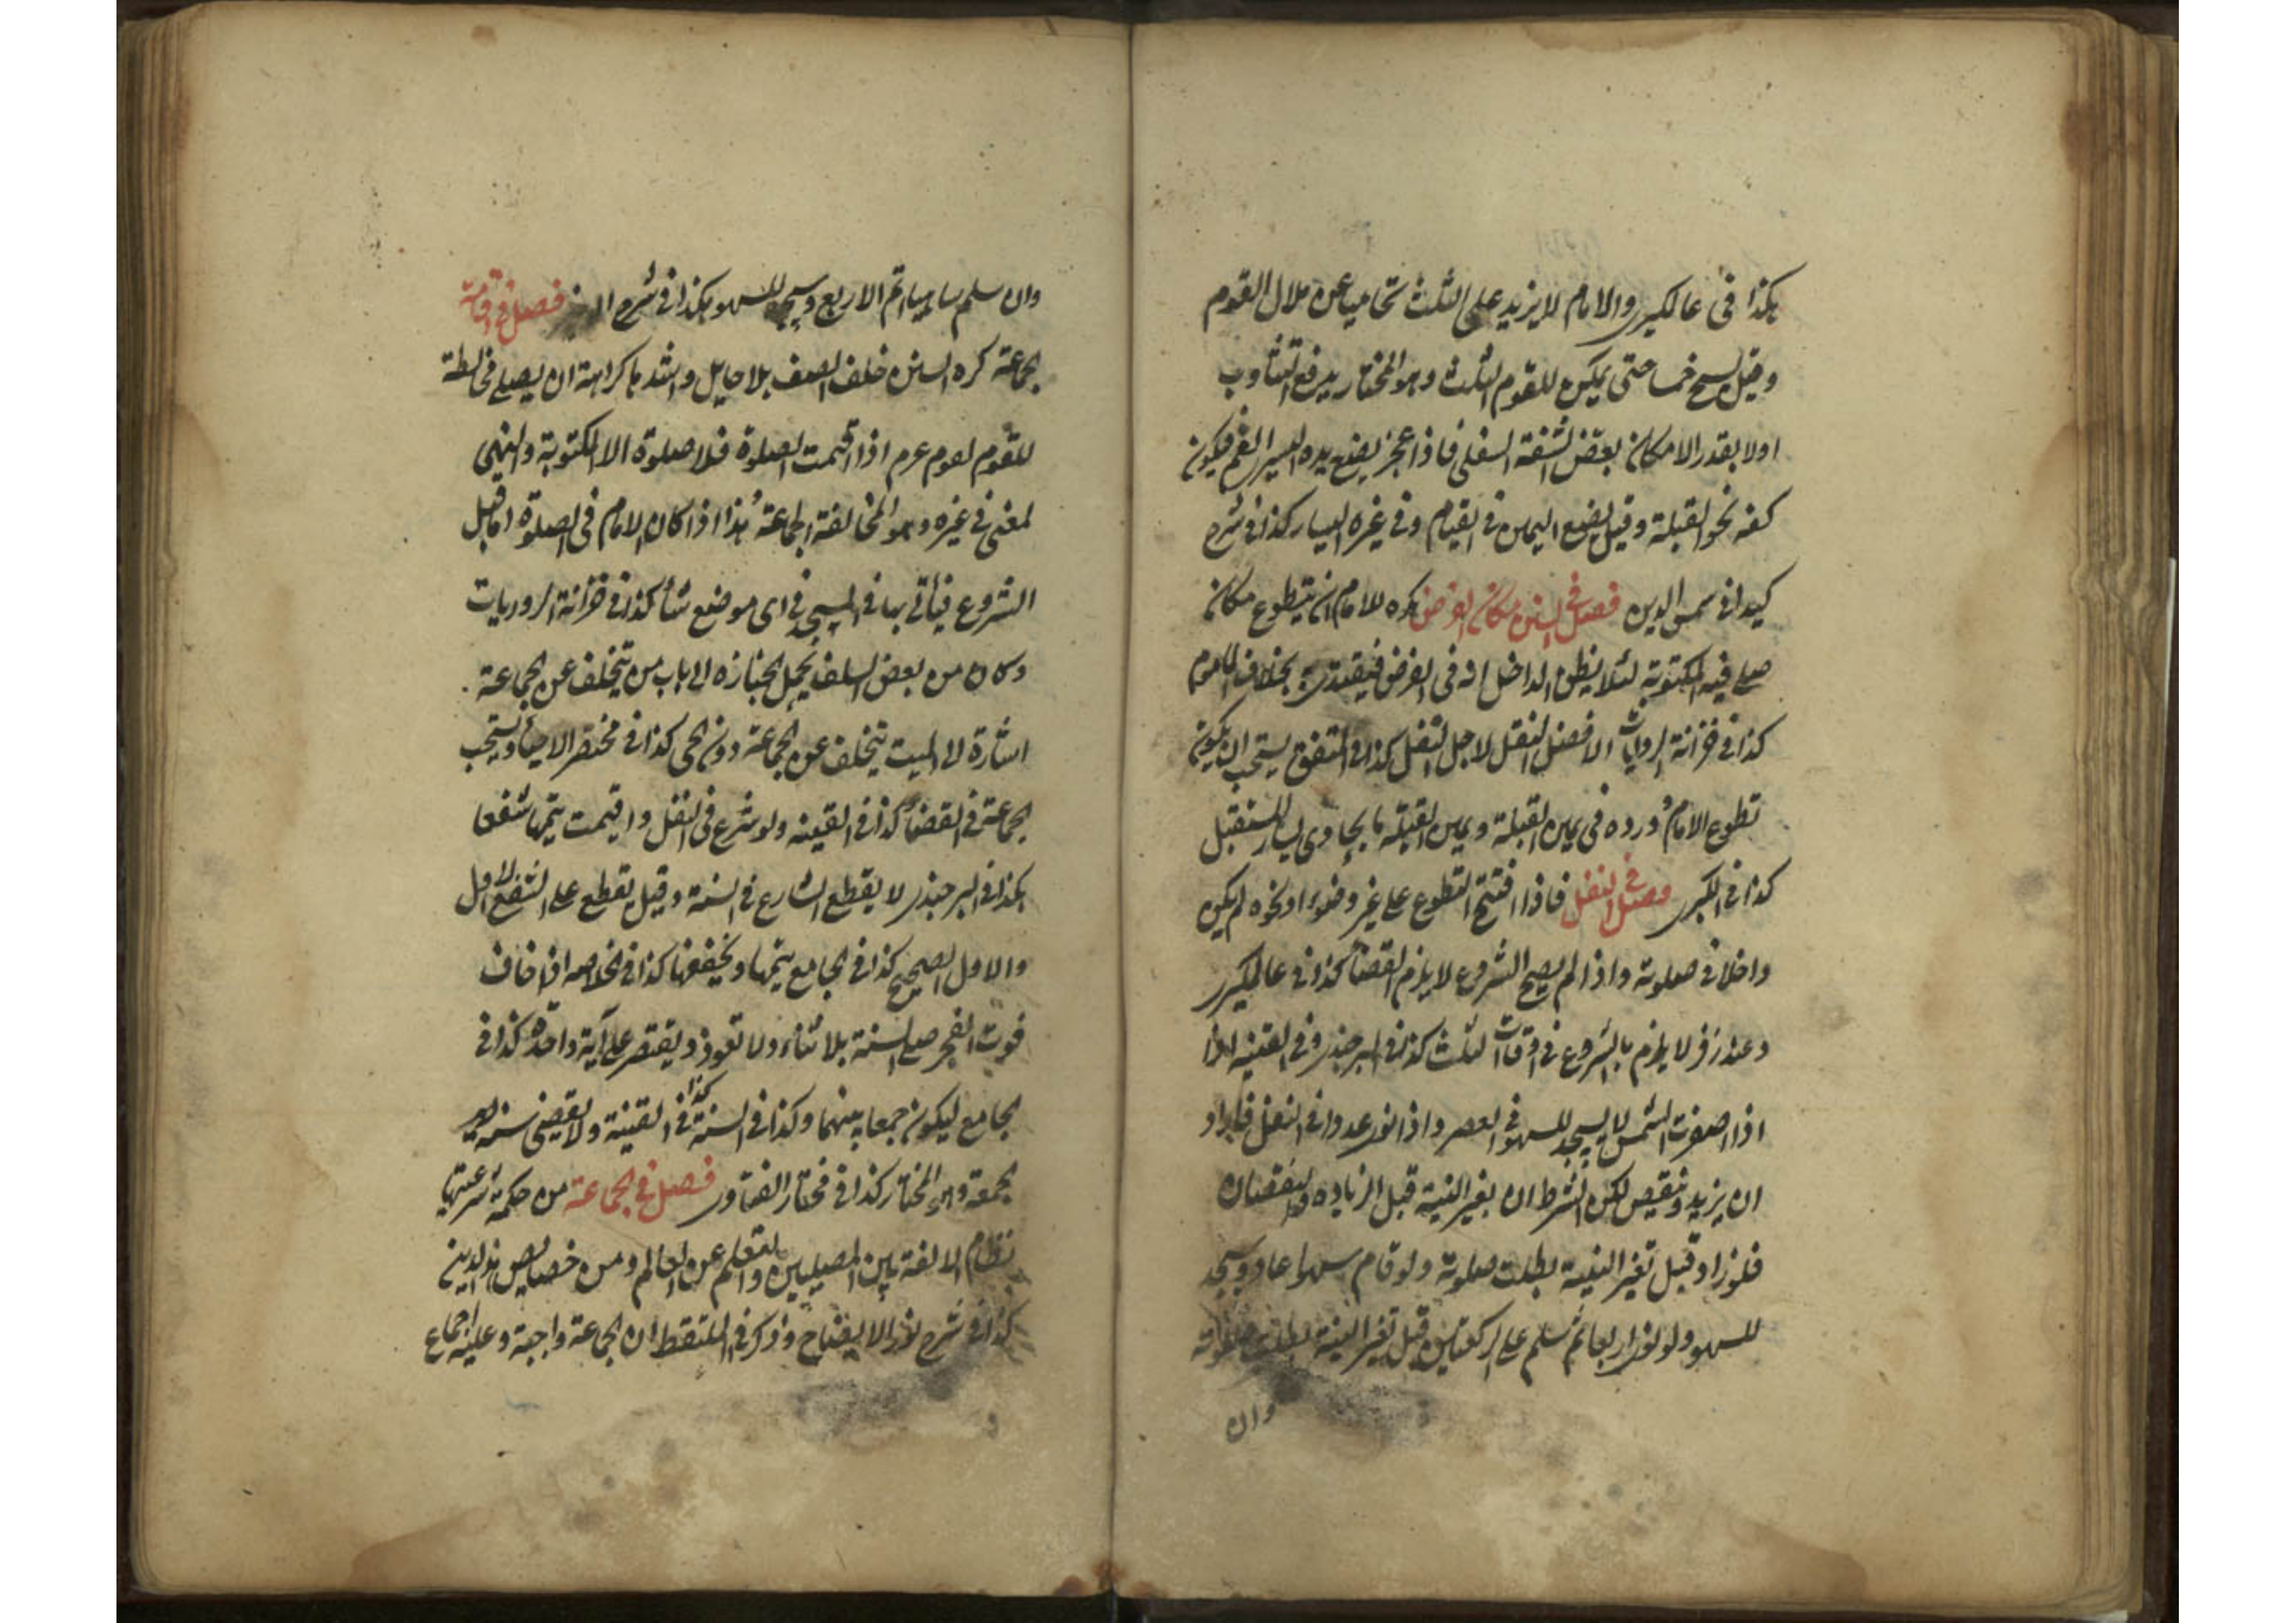 هكذا فى عالمكيرى والامام لا يزيد على الثلث تحاميا عن ملال القوم
وقيل يسبح خمسا حتى يمكن للقوم الثلث وهو المختار يدفع التثاوب
اولا بقدر الامكان بعض الشفة السفلى فاذا عجز يضع يده اليسرى الفم فيكون
كفه نحو القبلة وقيل يضع اليمين فى القيام وفى غيره اليسار كذا فى شرح
كيدانى شمس الدين فصل فى السنن مكان الفرض كره للامام ان يتطوع مكان
صلى فيه المكتوبة لئلا يظن الداخل انه فى الفرض فيقتدى به بخلاف الماموم
كذا فى خزانة الروايات الافضل النقل لاجل النفل كذا فى المتفق يستحب ان يكون
تطوع الامام وورده فى يمين القبلة ويمين القبلة ما يحاذى يسار المستقبل
كذا فى الكبرى فصل فى النفل فاذا افتتح التطوع على غير وضوء او نحوه لم يكن
داخلا فى صلوته واذا لم يصح الشروع لا يلزم القضأ كذا فى عالمكيرى
وعند زفر لا يلزم بالشروع فى اوقات الثلث كذا فى البرجندى وفى القنية
اذا اصفرت الشمس لا يسجد للسهو فى العصر واذا نوى عددا فى النفل فاراد
ان يزيد وينقص لكن الشرط ان يغير النية قبل الزيادة والنقصان
فلو زاد قبل تغير النية بطلت صلوته ولو قام سهوا عاد ويسجد
للسهو ولو نوى اربعا ثم سلم على الركعتين قبل تغير النية بطلت صلوته
وان
وان سلم ساهيا اتم الاربع ويسجد للسهو هكذا فى شرح فصل فى اقامة
الجماعة كره السنن خلف الصف بلا حايل واشدها كراهة ان يصلى فى مخالطة
للقوم لعموم عرم اذا اقيمت الصلوة فلا صلوة الا المكتوبة والنهى
لمعنى فى غيره وهو المخالفة الجماعة هذا اذا كان الامام فى الصلوة اما قبل
الشروع فيأتى بها فى المسجد فى اى موضع شأ كذا فى خزانة الروريات
وكان من بعض السلف يحمل الجنازه الى باب من يتخلف عن الجماعة
اشارة الى الميت يتخلف عن الجماعة دون الحى كذا فى مختصر الاحيأ ويستحب
الجماعة فى القضأ كذا فى القنية ولو شرع فى النفل واقيمت يتمها شفعا
هكذا فى البرجندى لا يقطع الشارع فى السنة وقيل يقطع على الشفع الاول
والاول الصحيح كذا فى الجامع يتمها ويخففها كذا فى الخلاصه اذا خاف
فوت الفجر صلى السنة بلا ثناء ولا تعوذ ويقتصر على آية واحدة كذا فى
الجامع ليكون جمعا بينهما وكذا فى السنة كذا فى القنية ولا يقضى سنة
الجمعة وهو المختار كذا فى مختار الفتاوى فصل فى الجماعة من حكمة شرعيتها
نظام الالفة بين المصليين والتعلم عن العالم ومن خصايص هذا الدين
كذا فى شرح نور الايضاح وذكر فى الملتقط ان الجماعة واجبة وعليه اجماع